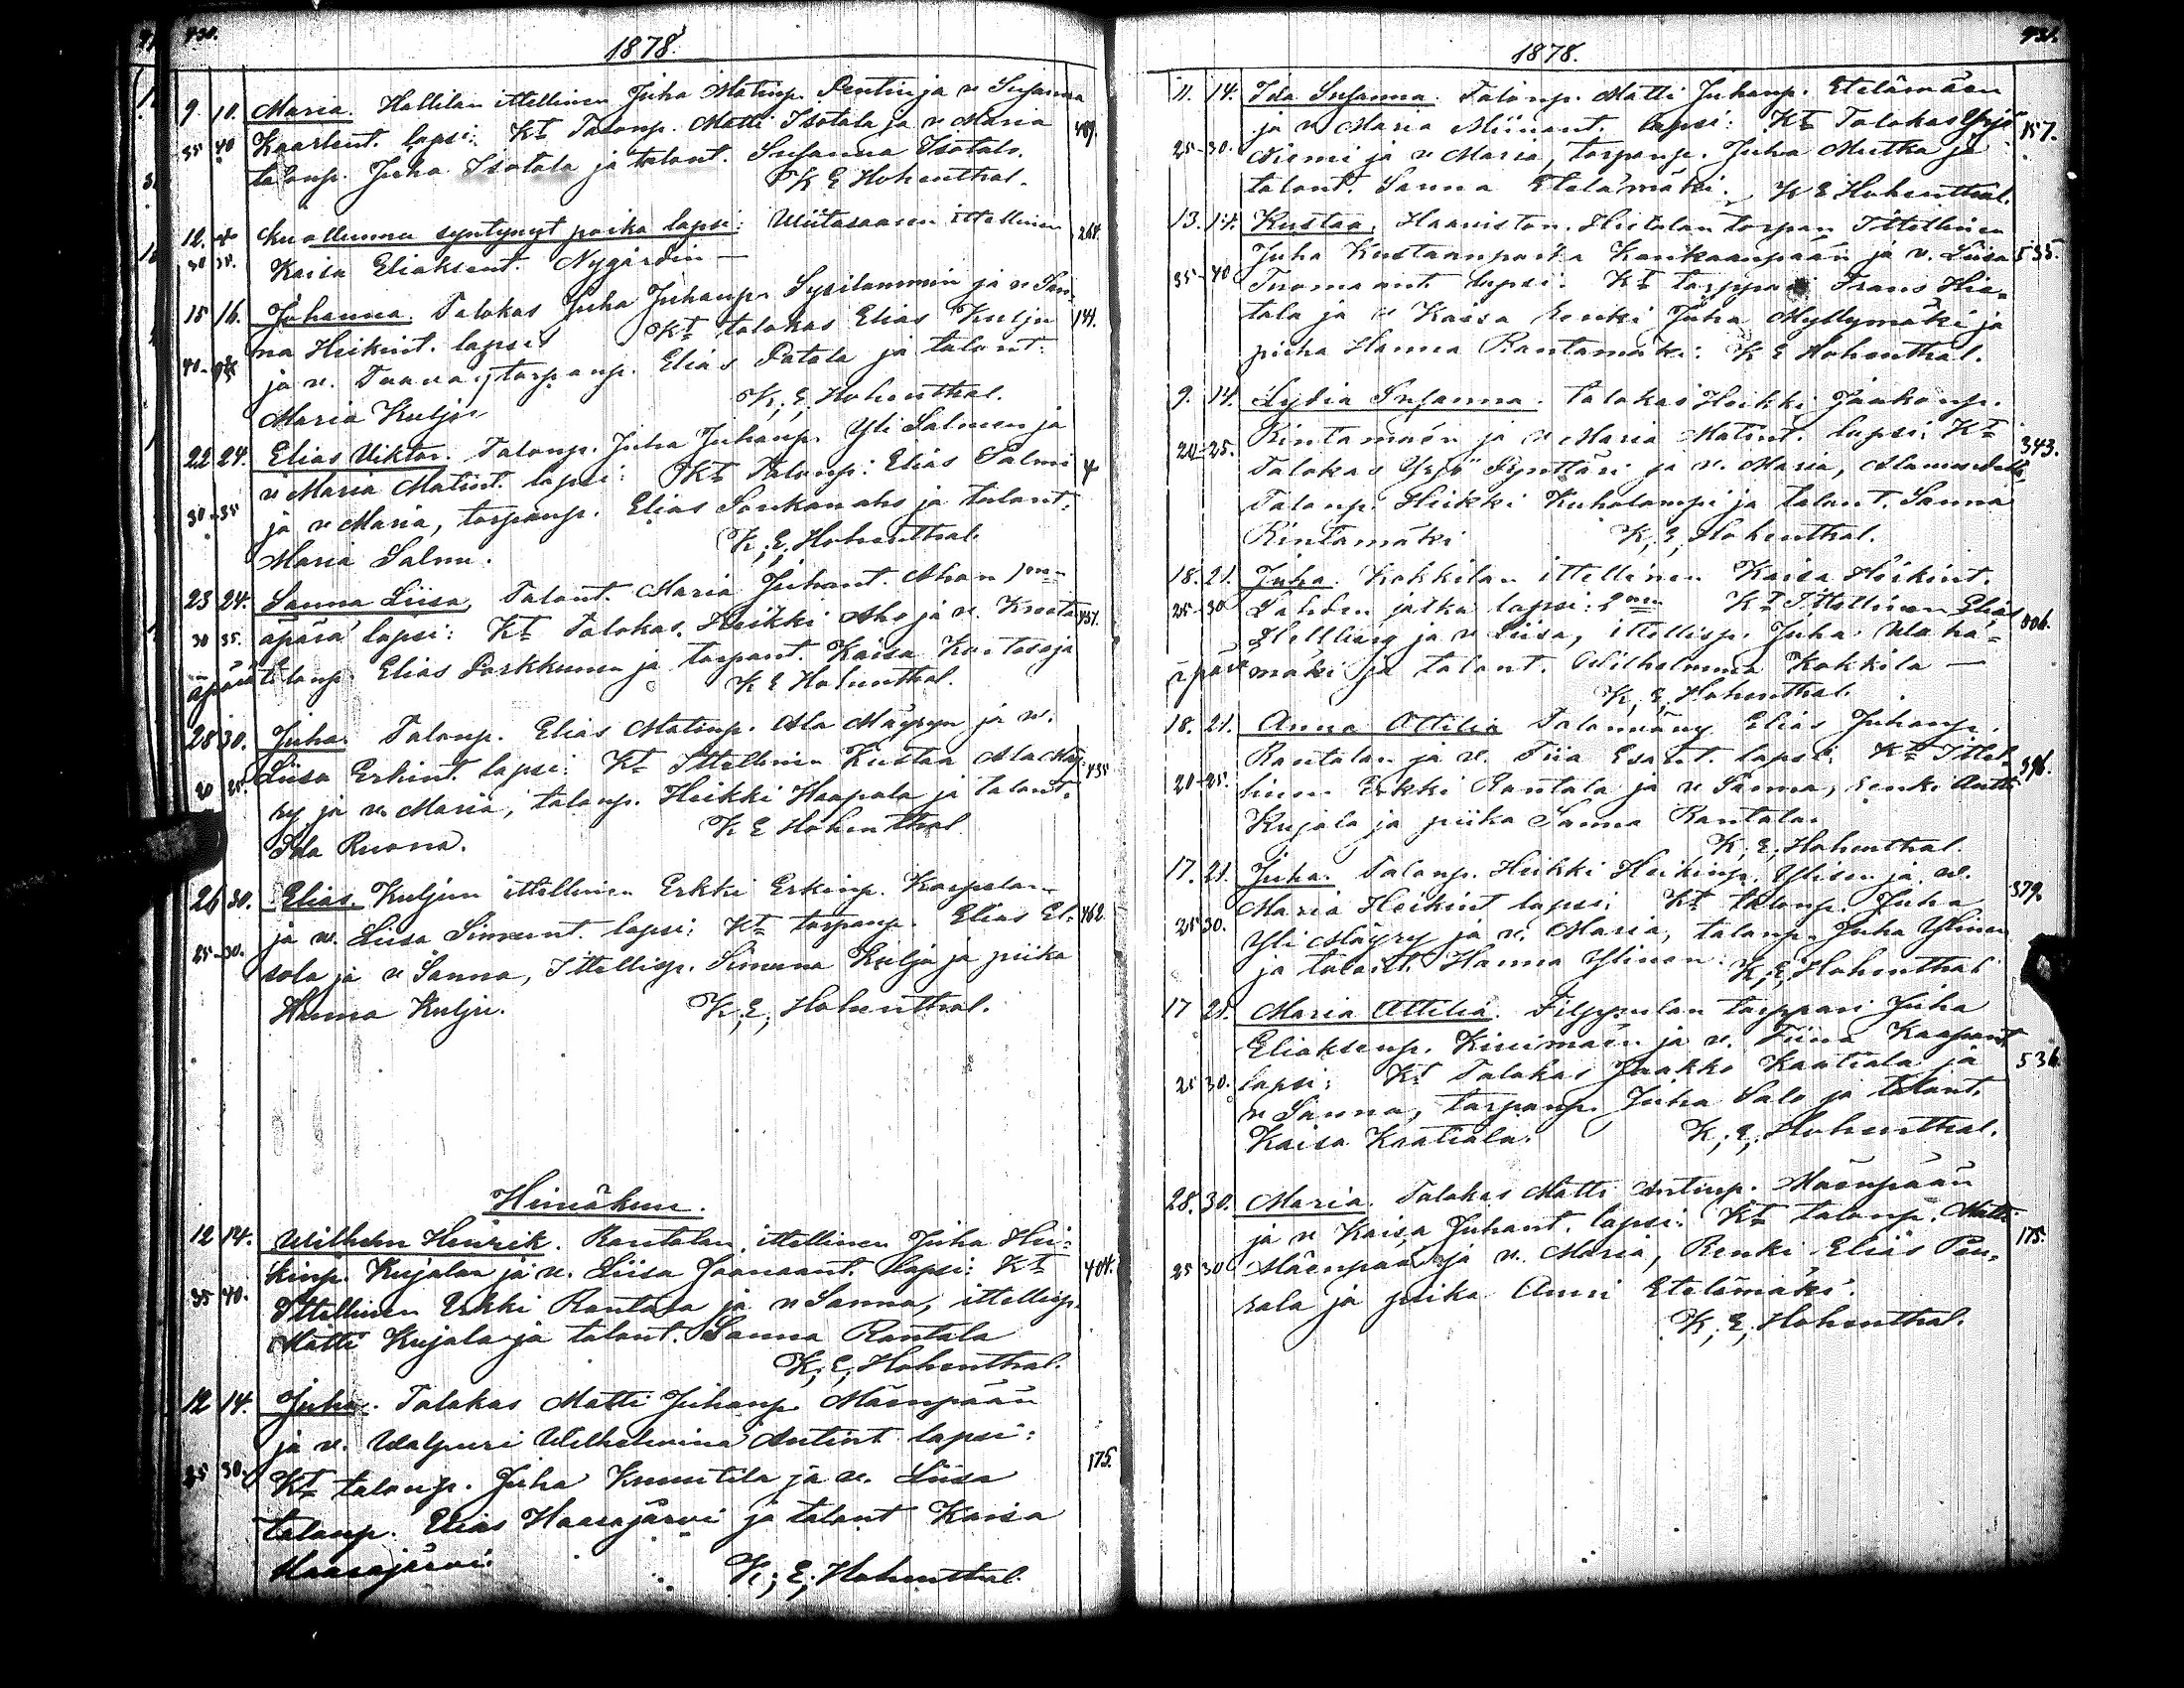 430.
1878.
9. 10. Maria. Hallilan ittellinen Juha Matinp. Pentin ja v. Susanna
35 40 Kaarlent. lapsi: Kt Talonp. Matti Isotalo ja v. Maria 409.
talonp. Juha Isotalo ja talont. Susanna Isotalo.
K E Hohenthal.
12. Kuolluna syntynyt poika lapsi: Uiitasaaren ittellinen 264.
30 35. Kaisa Eliaksent. Nygårdin —
15 16. Johanna. Talokas Juha Juhanp. Sysilammin ja v. San-
na Heikint. lapsi Kt talokas Elias Kulju 141.
40- ja v. Taava, torpanp. Elias Patola ja talont.
Maria Kulju K. E. Hohenthal.
22 24. Elias Viktor. Talonp. Juha Juhanp. Yli Salmen ja
v Maria Matint. lapsi: Kt Talonp. Elias Salmi 4
30-35 ja v Maria, torpanp. Elias Soukanaho ja talont.
Maria Salmi. K. E. Hohenthal.
23 24. Sanna Liisa, Talont. Maria Juhant. Ahon 1nen
30 35. äpärä lapsi: Kt Talokas Heikki Aho ja v. Kreeta 437.
äpärä talonp. Elias Porkkunen ja torpant. Kaisa Kontosaja
K E Hohenthal.
28 30. Juha. Talonp. Elias Matinp. Ala Mäyryn ja v.
Liisa Erkint. lapsi: Kt Ittellinen Kustaa Ala Mäy- 435
30 35. ry ja v. Maria, talonp. Heikki Haapala ja talont.
Ida Ruona. K E Hohenthal
26 30. Elias. Kuljun ittellinen Erkki Erkinp. Korpelan
ja v. Liisa Simunt. lapsi: Kt torpanp. Elias El- 462.
25-30. sola ja v Sanna, Ittellisp. Simuna Kulju ja piika
Hanna Kulju. K. E. Hohenthal.
Heinäkuu.
12 14. Wilhelm Henrik. Rantalan ittellinen Juha Hei-
kinp. Kujalan ja v. Liisa Joonaant. lapsi: Kt 404.
35 40. Ittellinen Erkki Rantala ja v Sanna, ittellisp.
Matti Kujala ja talont. Sanna Rantala
K. E. Hohenthal.
12 14. Juha. Talokas Matti Juhanp. Mäenpään
ja v. Walpuri Wilhelmina Antint. lapsi: 175.
25 30. Kt talonp. Juha Knuutila ja v. Liisa
talonp. Elias Haarajärvi ja talont Kaisa
Haarajärvi. K. E. Hohenthal.
431.
1878.
11. 14. Ida Susanna. Talonp. Matti Juhanp. Etelämäen
ja v Maria Miinant. lapsi: Kt Talokas Yrjö 157.
25-30. Niemi ja v Maria, torpanp. Juha Mutka ja
talont. Sanna Etelämäki. K E Hohenthal.
13. 14. Kustaa, Haaviston, Hietalan torpan Ittellinen
Juha Kustaanpoika Kankaanpään ja v. Liisa 535.
35-40 Tuomaant. lapsi: Kt torppari Frans Hie-
tala ja v Kaisa renki Juha Myllymäki ja
piika Hanna Rantamäki. K E Hohenthal.
9. 14. Lydia Susanna. Talokas Heikki Jaakonp.
Rintamäen ja v Maria Matint. lapsi: Kt 343.
20-25. Talokas Yrjö Synttäri ja v. Maria, Alamudella
Talonp. Heikki Kuhalampi ja talont. Sanna
Rintamäki K. E. Hohenthal.
18. 21. Juha. Kokkilan ittellinen Kaisa Heikint.
25-30 Lahden jatka lapsi: 2nen Kt Ittellinen Elias 806.
Hellberg ja v Liisa, ittellisp. Juha Ulaha-
äpärä mäki ja talont. Wilhelmina Kokkila —
K. E. Hohenthal.
18. 21. Anna Ottilia Talonvävy Elias Juhanp.
Rantalan ja v. Tiia Esaint. lapsi: Kt Ittel- 396.
20-25. linen Erkki Rantala ja v Sanna, renki Antti
Kujala ja piika Sanna Rantala.
K. E. Hohenthal.
17. 21. Juha. Talonp. Heikki Heikinp. Ylisen ja v.
Maria Heikint lapsi: Kt talonp. Juha 379.
25 30. Yli Mäyry ja v. Maria, talonp. Juha Ylinen
ja talont. Hanna Ylinen. K. E. Hohenthal
17 21. Maria Ottilia. Filppulan torppari Juha
Eliaksenp. Kivimäen ja v. Tiina Kaapont
25 30. lapsi: Kt Talokas Jaakko Kaatiala ja 536.
v Sanna, torpanp. Juha Salo ja talont.
Kaisa Kaatiala. K. E. Hohenthal.
28. 30. Maria. Talokas Matti Antinp. Mäenpään
ja v Kaisa Juhant. lapsi: Kt talonp. Matti 175.
25 30 Mäenpää ja v. Maria, Renki Elias Peu-
rala ja piika Anni Etelämäki.
K. E. Hohenthal.